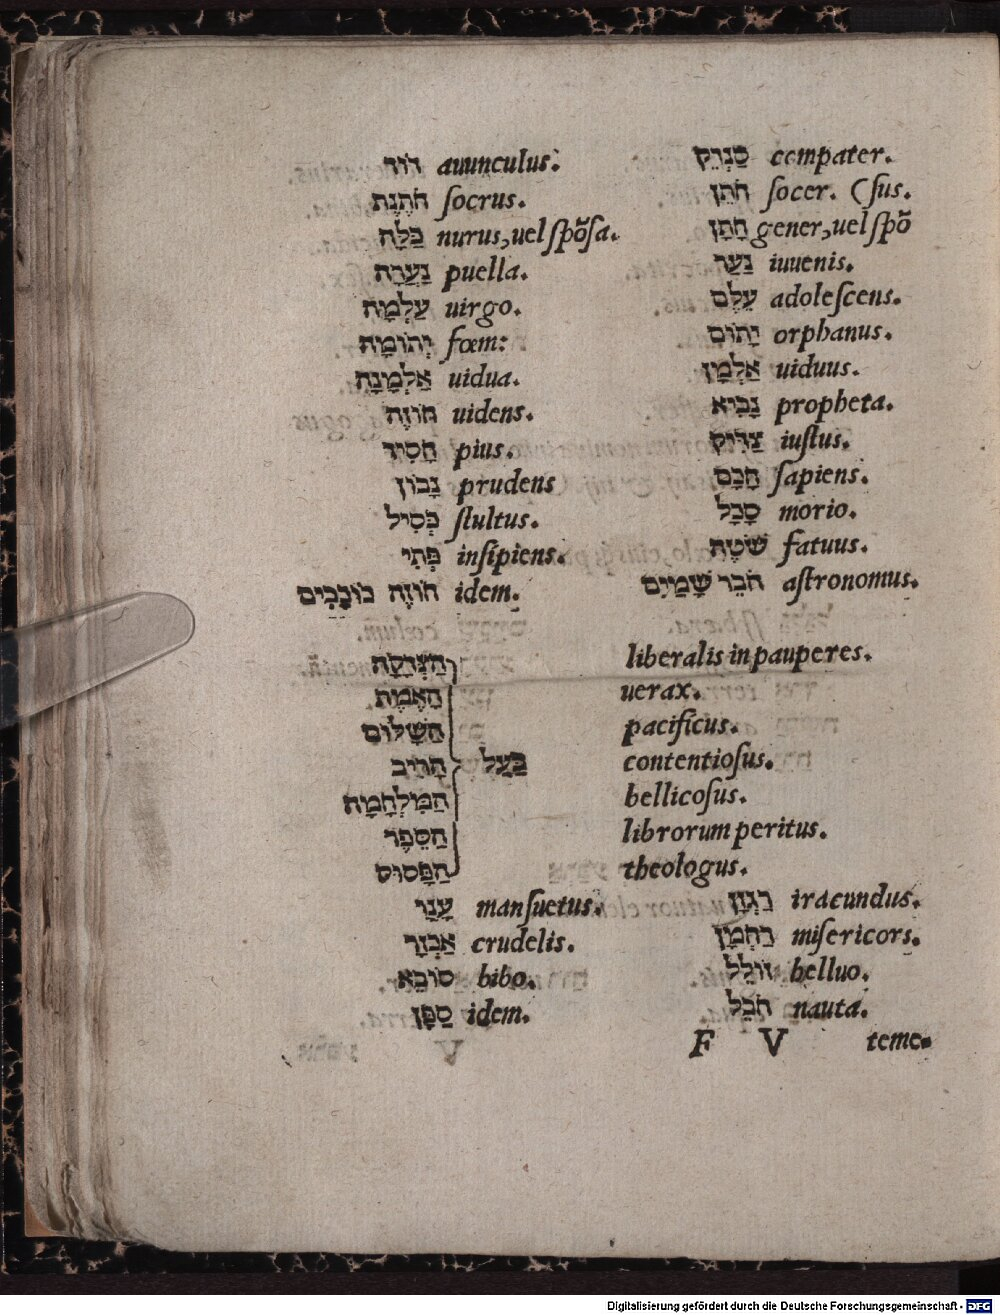 דּוֹד auunculus. סַנְדֵּק compater.
חֹתֶנֶת socrus. חֹתֵן socer. (sus.
כַּלָּה nurus, uel spõsa. חָתָן gener, uel spõ
נַעֲרָה puella. נַעַר iuuenis.
עַלְמָה uirgo. עֶלֶם adolescens.
יְתוֹמָה fœm: יָתוֹם orphanus.
אַלְמָנָה uidua. אַלְמָן uiduus.
חוֹזֶה uidens. נָבִיא propheta.
חָסִיד pius. צַדִּיק iustus.
נָבוֹן prudens חָכָם sapiens.
כְּסִיל stultus. סָכָל morio.
פְּתִי insipiens. שׁוֹטֶה fatuus.
חוֹזֶה כוֹכָבִים idem. חֹבֵר שָׁמַיִם astronomus.
הַצְּדָקָה liberalis in pauperes.
הָאֱמֶת uerax.
הַשָּׁלוֹם pacificus.
בַּעַל הָרִיב contentiosus.
הַמִּלְחָמָה bellicosus.
הַסֵּפֶר librorum peritus.
הַפָּסוּק theologus.
עָנָו mansuetus. רַגְזָן iracundus.
אַכְזָר crudelis. רַחְמָן misericors.
סוֹבֵא bibo. זוֹלֵל helluo.
סַפָּן idem. חֹבֵל nauta.
F V teme-
Digitalisierung gefördert durch die Deutsche Forschungsgemeinschaft - DFG